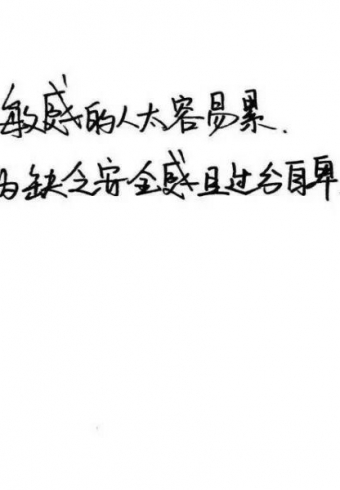 敏感的人太容易累.
为缺乏安全感且过分自卑